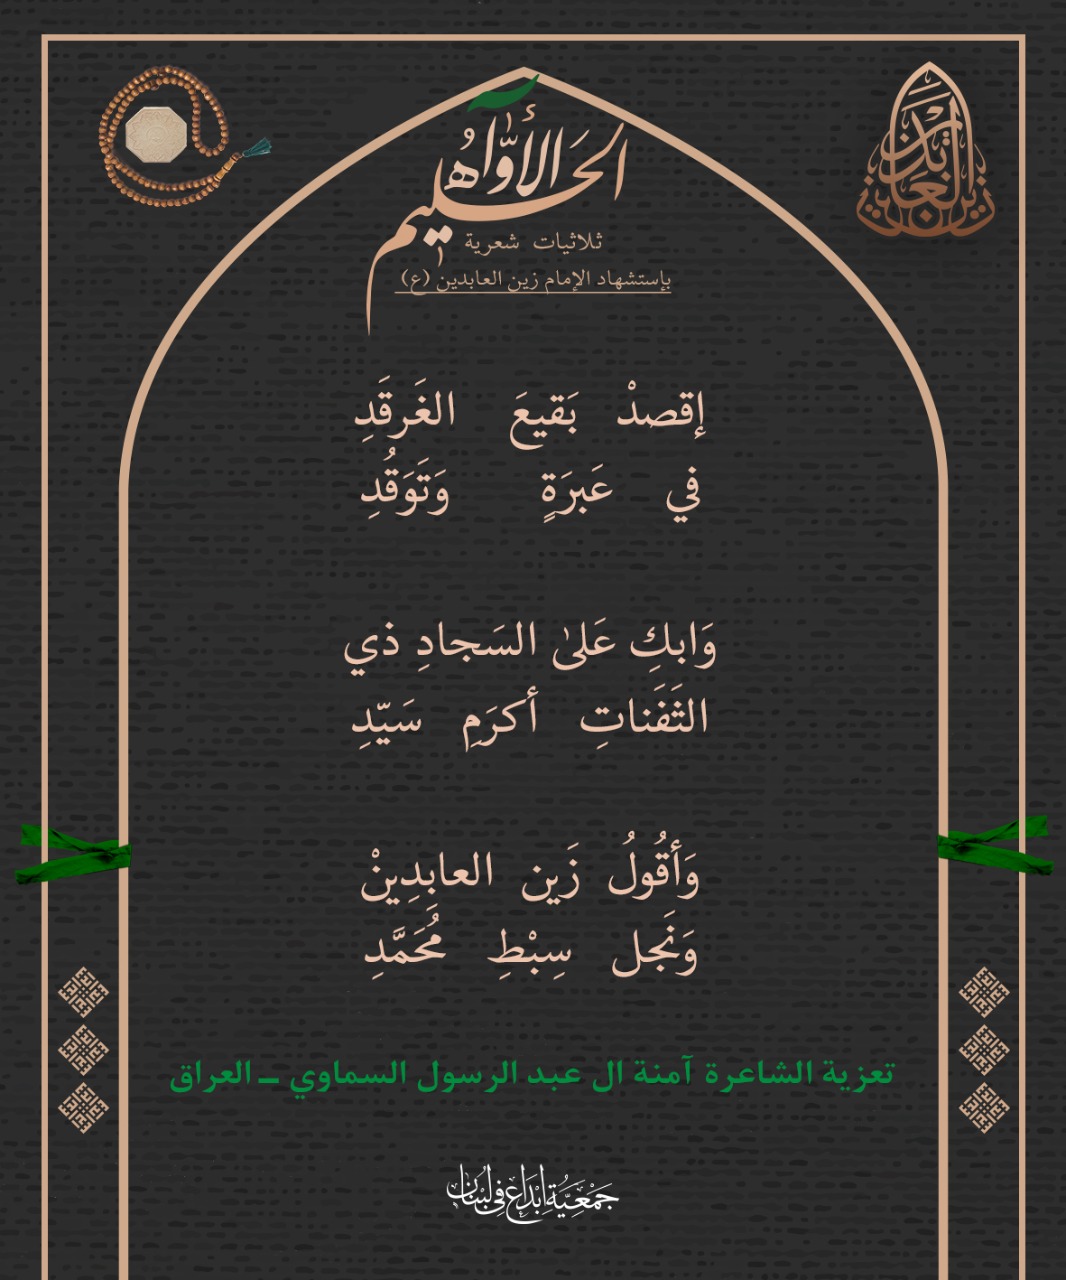 زين العابدين
الحليم الأوّاه
ثلاثيات شعرية
بإستشهاد الإمام زين العابدين (ع)
إقصدْ بَقيعَ الغَرقَدِ
في عَبرَةٍ وَتَوَقُدِ
وَابكِ عَلىٰ السَجادِ ذي
الثَفَناتِ أكرَمِ سَيّدِ
وَأقُولُ زَين العابِدِينْ
وَنَجل سِبْطِ مُحَمَّدِ
تعزية الشاعرة آمنة ال عبد الرسول السماوي ــ العراق
جَمْعِيَّةُ إبْدَاع فِي لُبْنَان